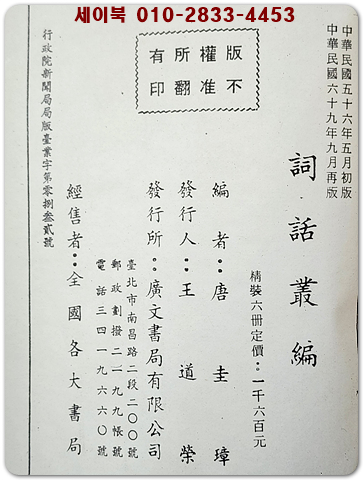 세이북 010-2833-4453
版權所有
不准翻印
中華民國五十六年五月初版
中華民國六十九年九月再版
詞話叢編
精裝六冊定價：一千六百元
編者：唐圭璋
發行人：王道榮
發行所：廣文書局有限公司
臺北市南昌路二段二〇〇號
郵政劃撥二一九九帳號
電話三四一九六六〇號
經售者：全國各大書局
行政院新聞局局版臺業字第零捌叁貳號